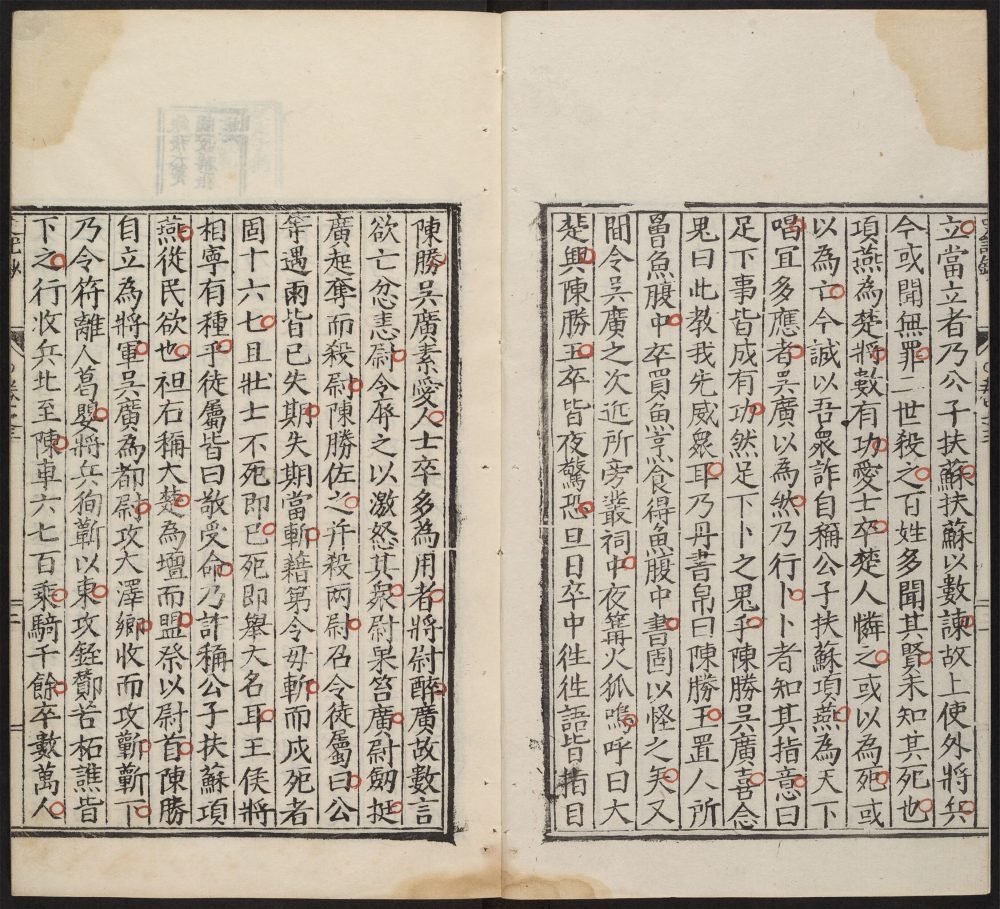 立當立者乃公子扶蘇扶蘇以數諫故上使外將兵
今或聞無罪二世殺之百姓多聞其賢未知其死也
項燕為楚將數有功愛士卒楚人憐之或以為死或
以為亡今誠以吾衆詐自稱公子扶蘇項燕為天下
唱冝多應者吳廣以為然乃行卜卜者知其指意曰
足下事皆成有功然足下卜之鬼乎陳勝吳廣喜念
鬼曰此教我先威衆耳乃丹書帛曰陳勝王置人所
罾魚腹中卒買魚烹食得魚腹中書固以怪之矣又
間令吳廣之次近所旁叢祠中夜篝火狐鳴呼曰大
楚興陳勝王卒皆夜驚恐旦日卒中徃徃語皆指目
陳勝吳廣素愛人士卒多為用者將尉醉廣故數言
欲亡忿恚尉令辱之以激怒其衆尉果笞廣尉劒挺
廣起奪而殺尉陳勝佐之并殺两尉召令徒屬曰公
等遇雨皆已失期失期當斬藉第令毋斬而戍死者
固十六七且壯士不死即已死即舉大名耳王侯將
相寧有種乎徒屬皆曰敬受命乃詐稱公子扶蘇項
燕從民欲也袒右稱大楚為壇而盟祭以尉首陳勝
自立為將軍吳廣為都尉攻大澤鄉收而攻蘄蘄下
乃令符離人葛嬰將兵徇蘄以東攻銍酇苦柘譙皆
下之行收兵北至陳車六七百乘騎千餘卒數萬人